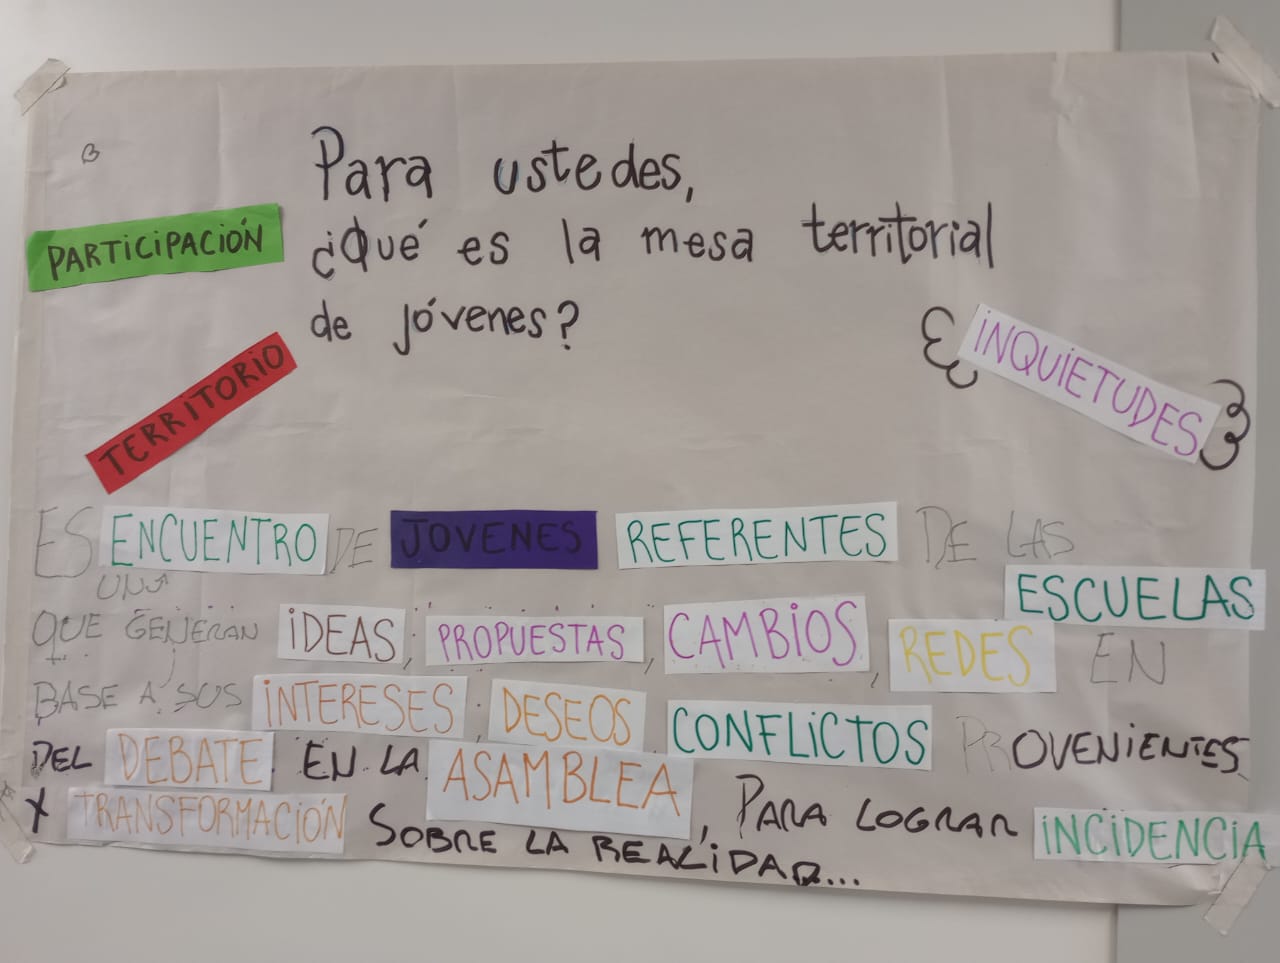 B
Para ustedes,
PARTICIPACIÓN
¿Qué es la mesa territorial
de jóvenes?
TERRITORIO
INQUIETUDES
ES ENCUENTRO DE JOVENES REFERENTES DE LAS
ESCUELAS
QUE GENERAN IDEAS, PROPUESTAS, CAMBIOS, REDES EN
BASE A SUS INTERESES, DESEOS, CONFLICTOS PROVENIENTES
DEL DEBATE EN LA ASAMBLEA, PARA LOGRAR INCIDENCIA
Y TRANSFORMACIÓN SOBRE LA REALIDAD...